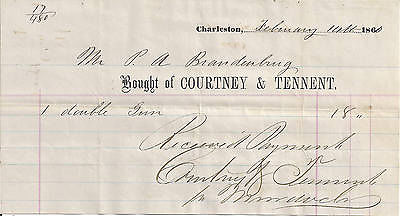 17
/480
Charleston, February 10th 1860
Mr P. A Brandenburg
Bought of COURTNEY & TENNENT.
1 double Gun 18 "
Received Payment
Courtney & Tennent
pr